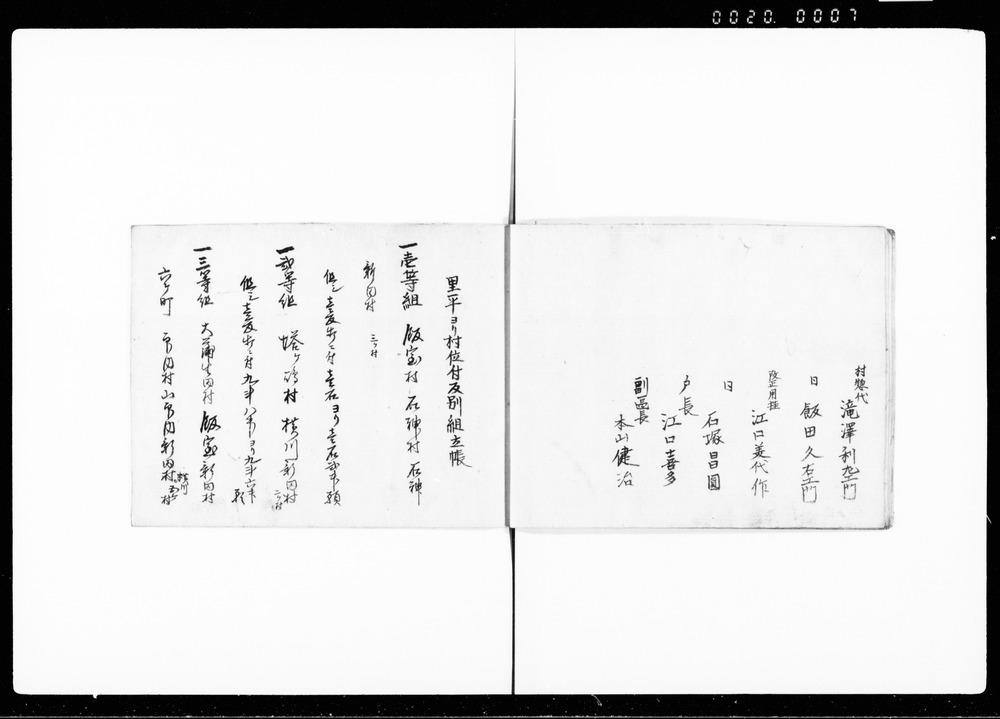 0020. 0007
村惣代
滝澤利左エ門
日 飯田久右エ門
改正用掛
江口美代作
日 石塚昌圓
戸長
江口喜多
副區長
本山健治
里平ヨリ村位付反別組立帳
一壱等組 飯宝村 石神村 石神
新田村 三ヶ村
但シ壱反歩ニ付壱石ヨリ壱石弐斗
一弐等組 塔ヶ崎村 横川新田村 二ヶ村
但シ壱反歩ニ付九斗八升ヨリ九斗六升
一三等組 大蒲生田村 飯宝新田村
六ヶ町 当間村 山当間新田村 五ヶ村